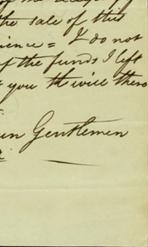 the sale of this
ience = I do not
of the funds I left
you th will there
in Gentlemen